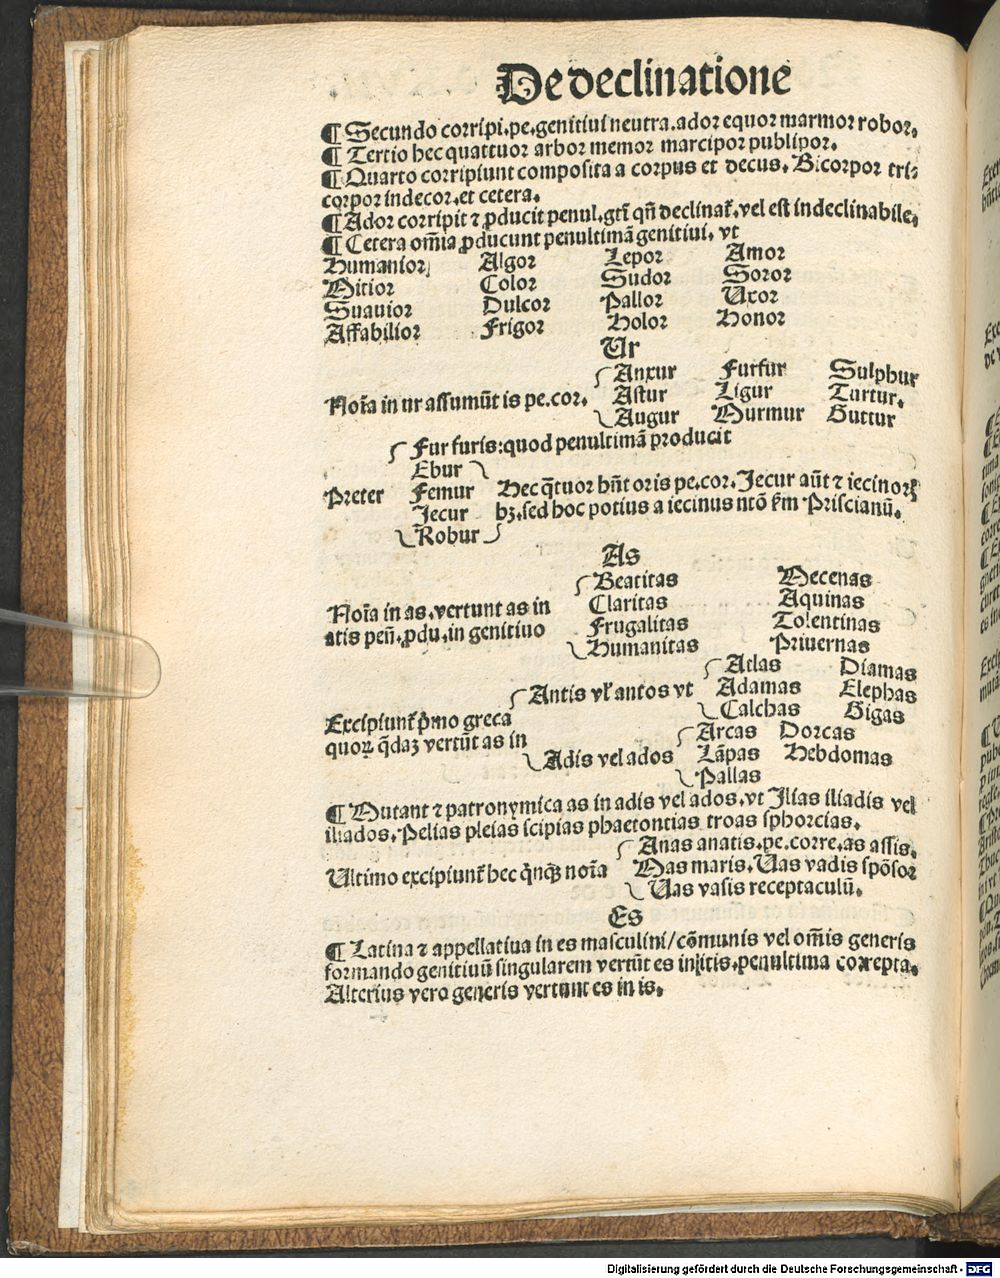 De declinatione
¶ Secundo corripi.pe.genitiui neutra.ador equor marmor robor.
¶ Tertio hec quattuor arbor memor marcipor publipor.
¶ Quarto corripiunt composita a corpus et decus. Bicorpor tri⸗
corpor indecor.et cetera.
¶ Ador corripit ⁊ ꝓducit penul.gtī qñ declinat᷑.vel est indeclinabile.
¶ Cetera om̄ia ꝓducunt penultimā genitiui. vt
Humanior Algor Lepor Amor
Mitior Color Sudor Soror
Suauior Dulcor Pallor Uxor
Affabilior Frigor Holor Honor
Ur
Anxur Furfur Sulphur
Noīa in ur assumūt is pe.cor. Astur Ligur Turtur.
Augur Murmur Guttur
Fur furis:quod penultimā producit
Ebur
Preter Femur Hec q̄tuor hn̄t oris pe.cor. Jecur aūt ⁊ iecinorꝭ
Jecur hꝫ.sed hoc potius a iecinus ntō ẜm Priscianū.
Robur
As
Beatitas Mecenas
Noīa in as.vertunt as in Claritas Aquinas
atis pen̄.ꝓdu.in genitiuo Frugalitas Tolentinas
Humanitas Priuernas
Atlas Diamas
Antis vl̓ antos vt Adamas Elephas
Excipiunt᷑ p̄mo greca Calchas Gigas
quoꝝ q̄daꝫ vertūt as in Arcas Dorcas
Adis vel ados Lāpas Hebdomas
Pallas
¶ Mutant ⁊ patronymica as in adis vel ados.vt Ilias iliadis vel
iliados.Pelias pleias scipias phaetontias troas sphorcias.
Anas anatis.pe.corre.as assis.
Ultimo excipiunt᷑ hec q̄nqꝫ noīa Mas maris.Uas vadis spōsor
Uas vasis receptaculū.
Es
¶ Latina ⁊ appellatiua in es masculini/cōmunis vel om̄is generis
formando genitiuū singularem vertūt es in itis.penultima correpta.
Alterius vero generis vertunt es in is.
Digitalisierung gefördert durch die Deutsche Forschungsgemeinschaft - DFG